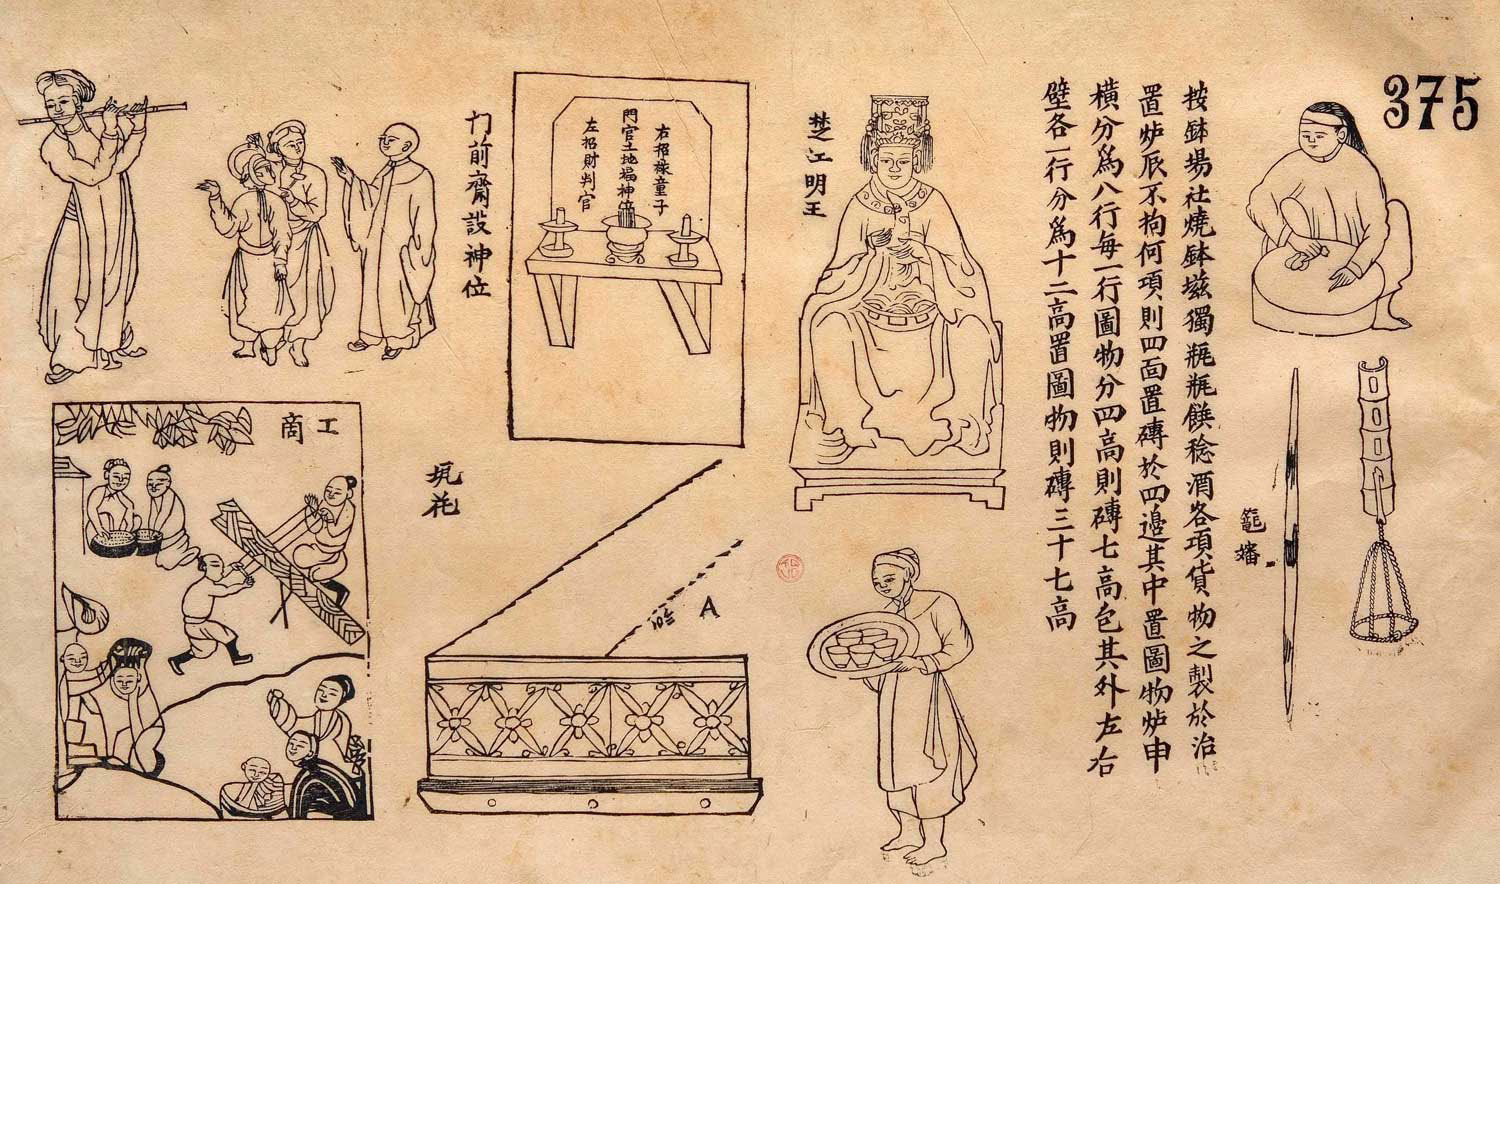 375
按鉢場社燒鉢㙲獨瓶瓶饌稔酒各項貨物之製於治
置炉辰不拘何項則四面置磚於四邉其中置圖物炉申
橫分爲八行每一行圖物分四高則磚七高包其外左右
壁各一行分爲十二高置圖物則磚三十七高
楚江明王
右招祿童子
門官土地福神位
左招財判官
門前齋設神位
工商
A